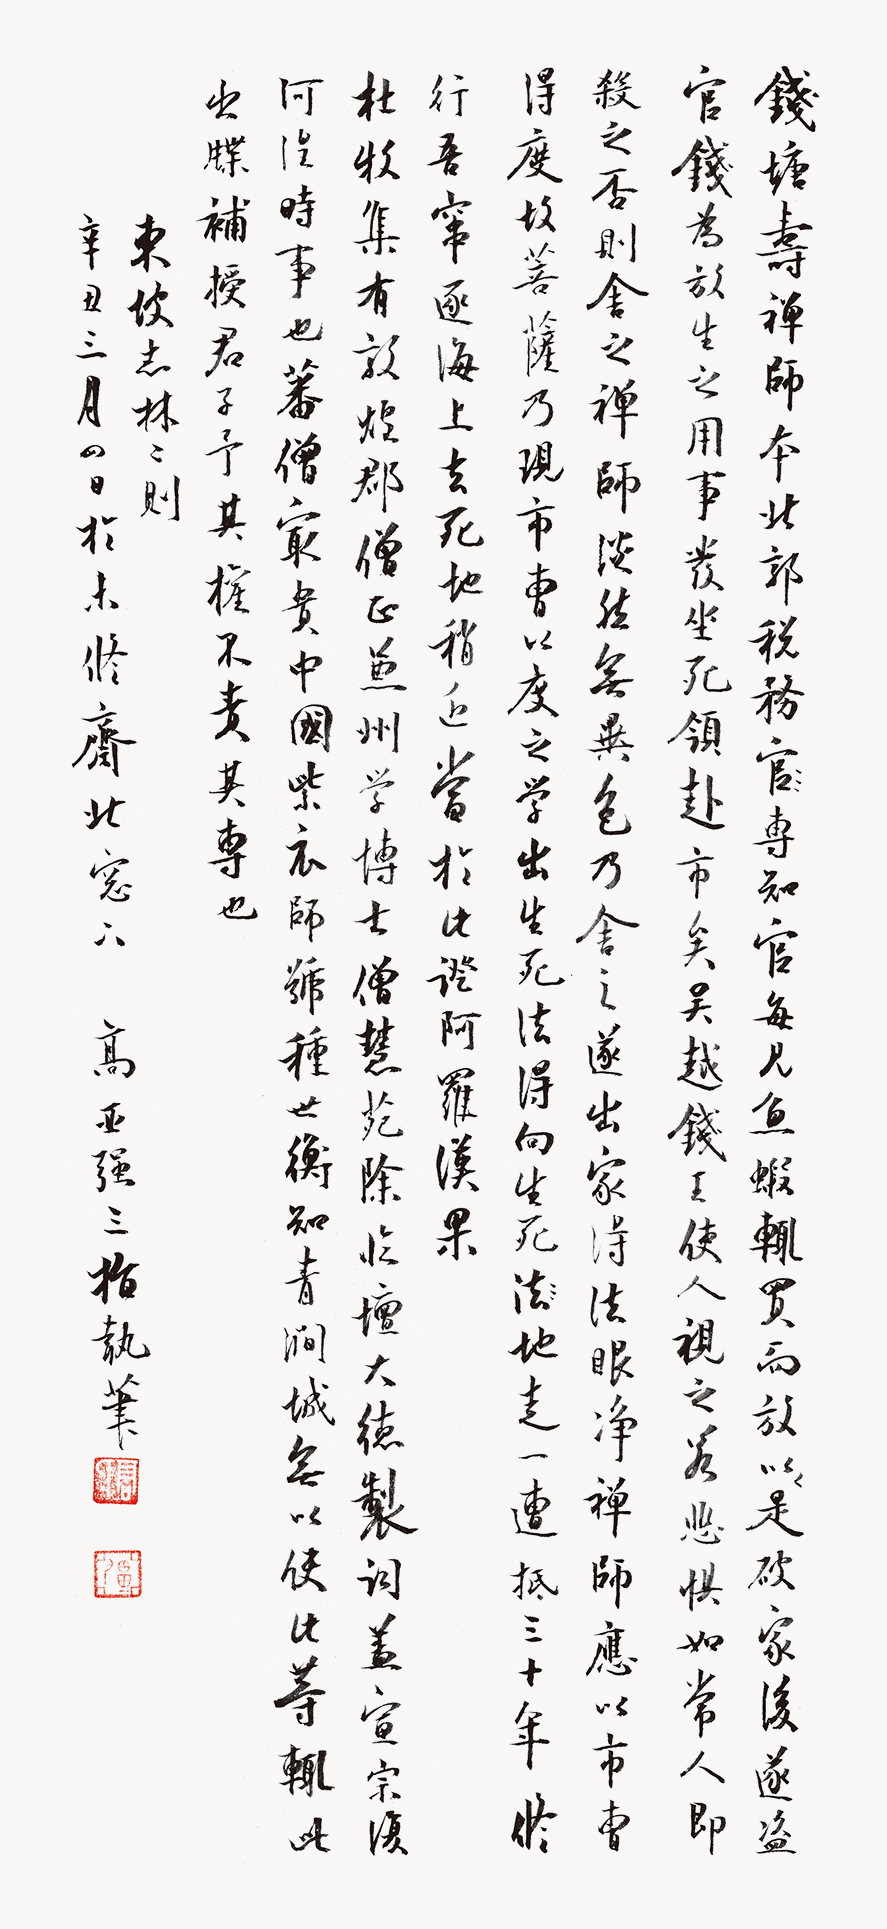 錢塘壽禪師本北郭稅務官〻專知官每見魚蝦輒買而放以〻是破家後遂盜
官錢為放生之用事發坐死領赴市矣吳越錢王使人視之若悲懼如常人即
殺之否則舍之禪師淡然無異色乃舍之遂出家得法眼净禪師應以市曹
得度故菩薩乃現市曹以度之学出生死法得向生死法〻地走一遭抵三十年修
行吾竄逐海上去死地稍近當於此證阿羅漢果
杜牧集有敦煌郡僧正兼州学博士僧慧苑除临壇大德製詞蓋宣宗復
河湟時事也蕃僧最貴中國紫衣師號種世衡知青澗城無以使此等輒此
出牒補授君子予其權不責其專也
東坡志林二則
辛丑三月四日於未修齋北窓下 高亚强三指執筆